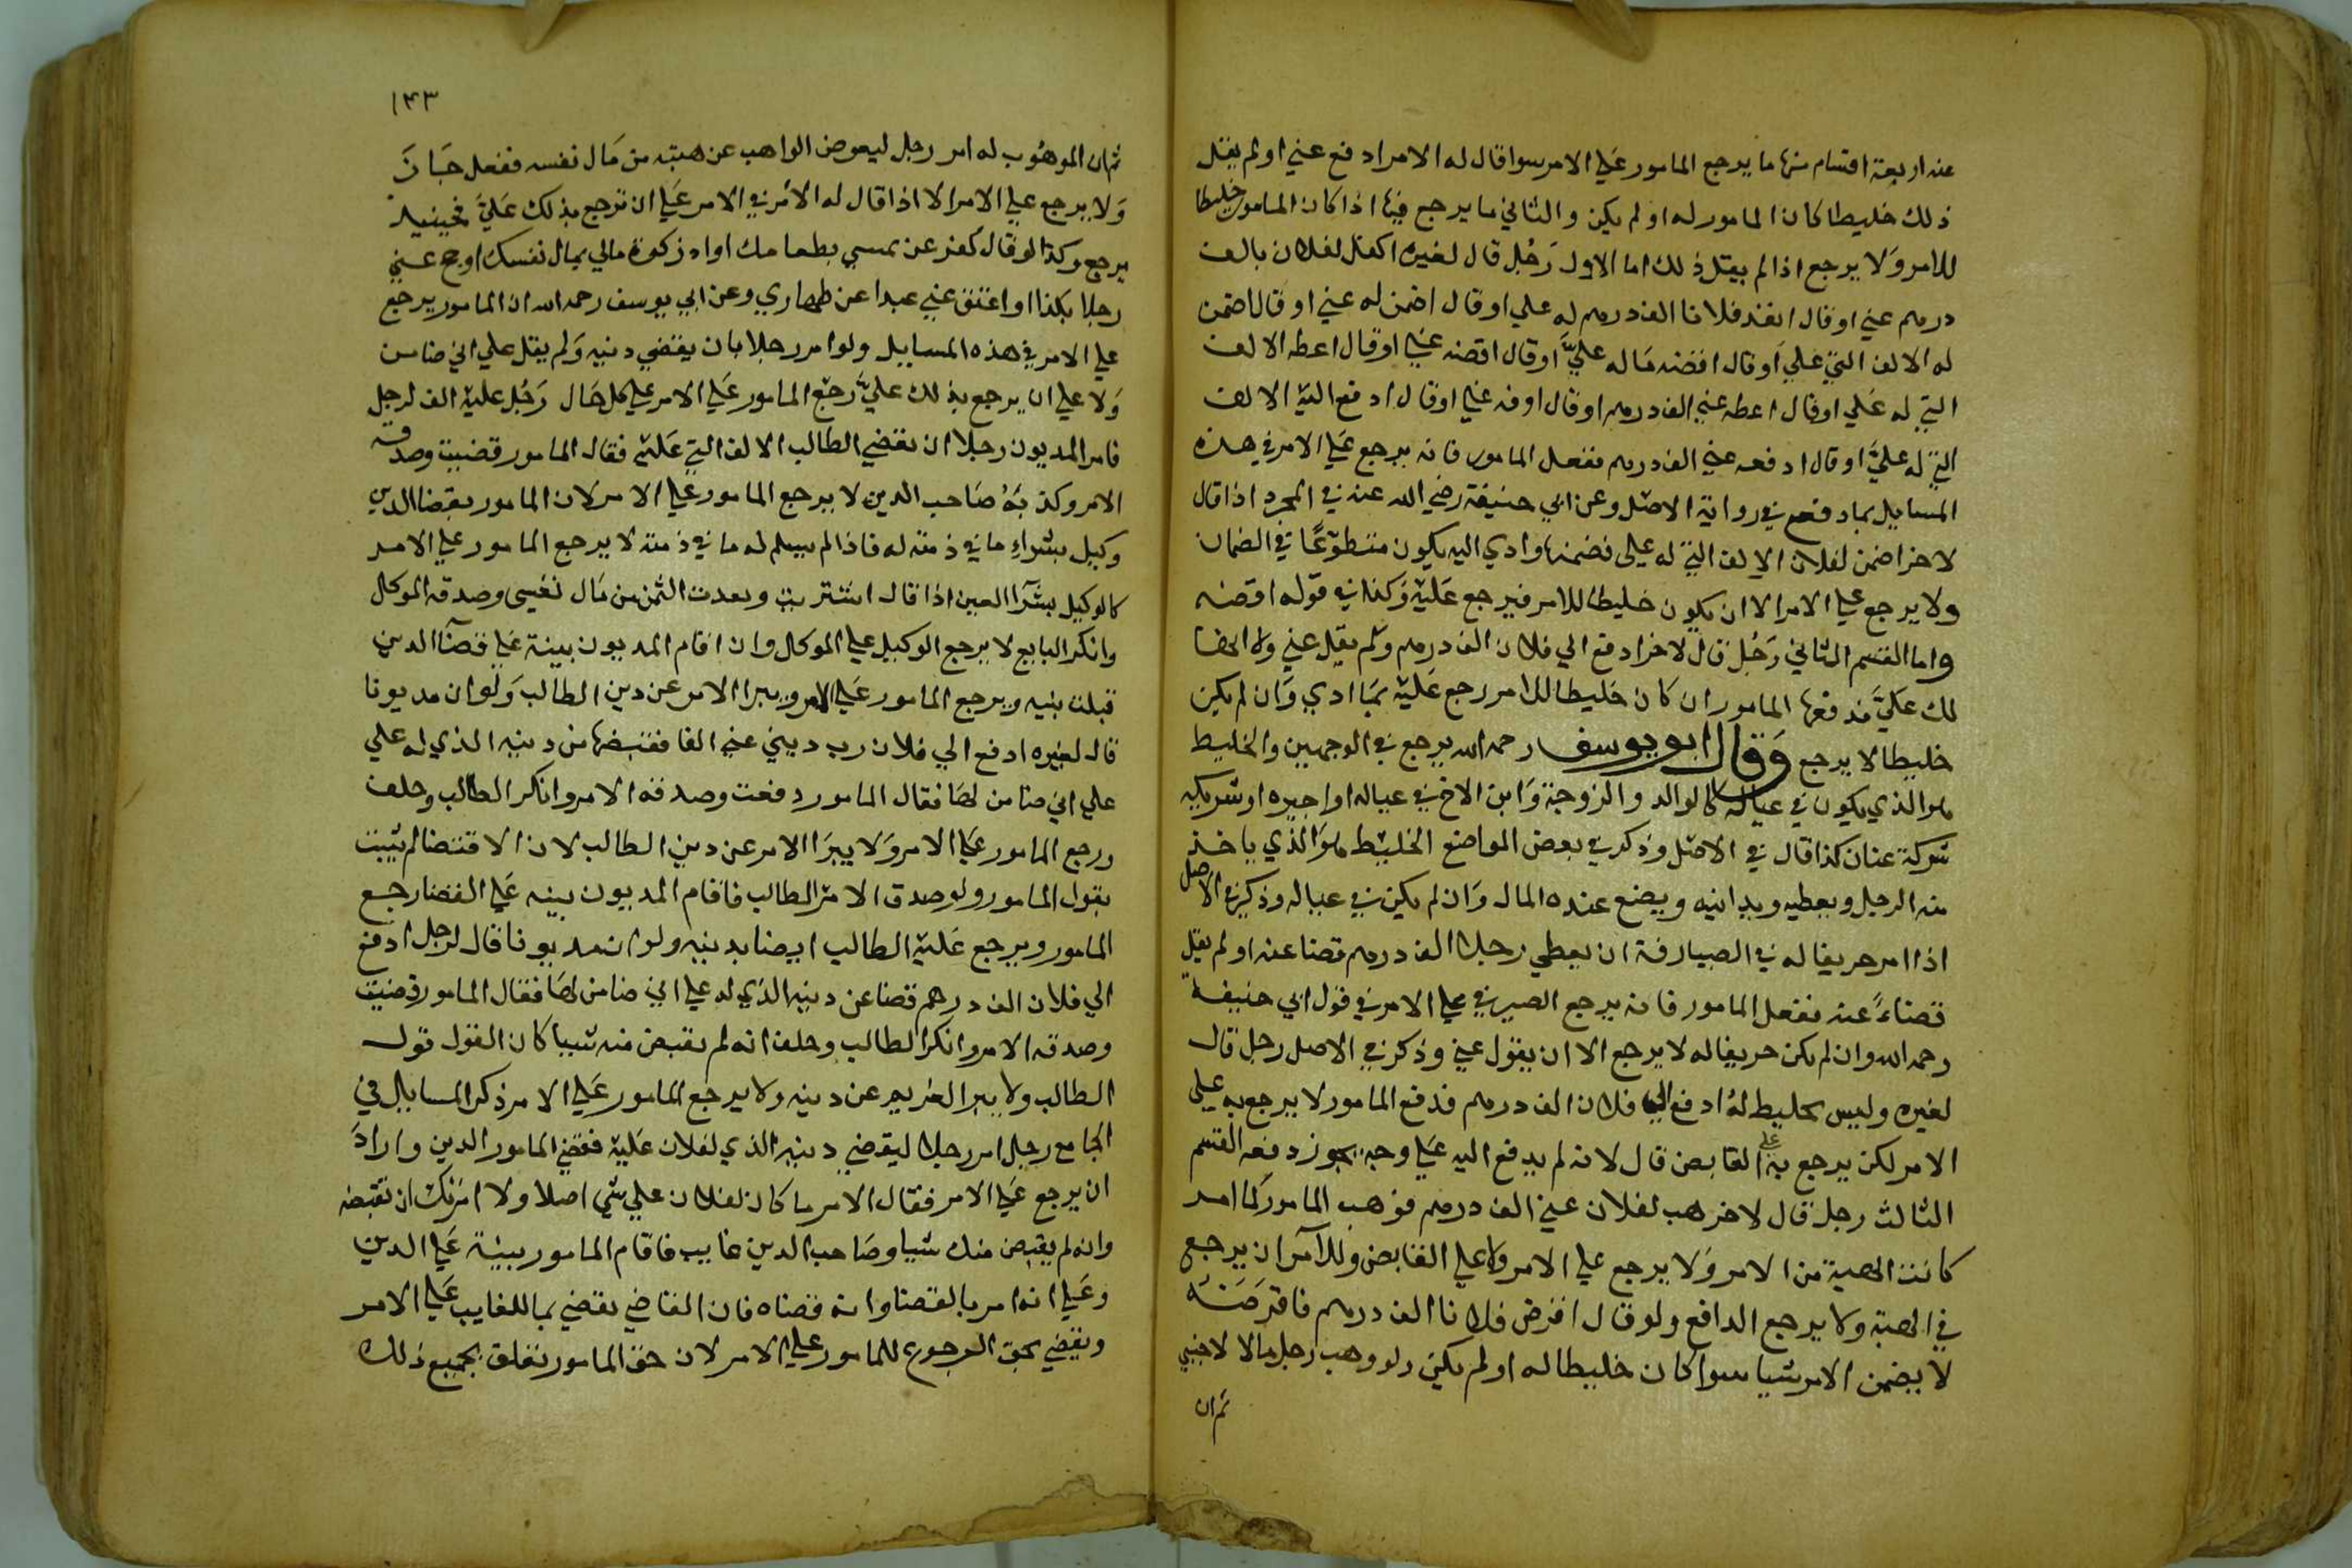 عنه اربعة اقسام منها ما يرجع المامور علي الامر سوا قال له الامر ادفع عني او لم يقل
ذلك خليطا كان المامور له او لم يكن والثاني ما يرجع فيها اذا كان المامور خليطا
للامر وَلا يرجع اذا لم يقل ذلك اما الاول رَجُل قال لغيره اكفل لفلان بالف
درهم عني او قال انقد فلانا الف درهم له علي او قال اضمن له عني او قال اضمن
له الالف التي علي اَو قال اقضه مَاله عليَّ او قال اقضه عني او قال اعطه الالف
التي له عَلي او قال اعطه عني الف درهم او قال اوفه عني او قال ادفع اليه الالف
التي له عليَّ او قال ادفعه عني الف درهم ففعل المامور فانه يرجع عَلي الامر في هذه
المسايل بما دفع في رواية الاصل وعن ابي حنيفة رضي الله عنه في المجرد اذا قال
لاخر اضمن لفلان الالف التي له علي فضمنها وادي اليه يكون متطوّعًا في الضمان
ولا يرجع علي الامر الا ان يكون خليطا للامر فيرجع عَليه وَكذا في قوله اقضه
واما القسم الثاني رَجُل قال لاخر ادفع الي فلان الف درهم وَلم يقل عني ولا انها
لك عَليَّ فدفعها المامور ان كان خليطا للامر رجع عَليه بمَا ادي وَان لم يكن
خليطا لا يرجع وَقال ابو يوسف رحمه الله يرجع في الوجهين والخليط
هو الذي يكون في عياله كالوالد والزوجة وَابن الاخ في عياله او اجيره او شريكه
شركة عنان كذا قال في الاصل وذكر في بعض المواضع الخليط هوَ الذي ياخذ
منه الرجل ويعطيه ويداينه ويضع عنده المال وَان لم يكن في عياله وذكر في الاصل
اذا امر حريفا له في الصيارفة ان يعطي رجلا الف درهم قضا عنه او لم يقل
قضاءً عنه ففعل المامور فانه يرجع الصيرفي علي الامر في قول ابي حنيفة
رحمه الله وان لم يكن حريفا له لا يرجع الا ان يقول عني وذكر في الاصل رجل قال
لغيره وليس بخليط لهُ ادفع الي فلان الف درهم فدفع المامور لا يرجع به علي
الامر لكن يرجع به علي القابض قال لانه لم يدفع اليه عَلي وجه يجوز دفعه القسم
الثالث رجل قال لاخر هب لفلان عني الف درهم فوهب المامور كما امر
كانت الهبة من الامر وَلا يرجع علي الامر ولا علي القابض وللآمر ان يرجع
في الهبة ولا يرجع الدافع ولو قال اقرض فلانا الف درهم فاقرَضَهُ
لا يضمن الامر شيا سوا كان خليطا له او لم يكن ولو وهب رجل مالا لاجنبي
ثم ان
١٤٣
ثم ان الموهُوب له امر رجل ليعوض الواهب عن هبته من مَال نفسه ففعل جَازَ
وَلا يرجع علي الامر الا اذا قال له الآمر في الامر عَلي ان ترجع بذلك عَليَّ فحينيذ
يرجع وكذا لو قال كفر عن يميني بطعامك او اد زكوة مالي بمال نفسك او حج عني
رجلا بكذا او اعتق عني عبدا عن ظهاري وعن ابي يوسف رحمه الله ان المامور يرجع
علي الامر في هذه المسايل ولو امر رجلا بان يقضي دينه وَلم يقل علي اني ضامن
وَلا علي ان يرجع بذلك عليَّ رجع المامور عَلي الامر علي كل حَال رَجُل عليه الف لرجل
فامر المديون رجلا ان يقضي الطالب الالف التي عَليه فقال المامور قضيت وصدقه
الامر وكذبَهُ صَاحب الدين لا يرجع المامور علي الامر لان المامور بقضا الدين
وكيل بشراءِ ما في ذمته له فاذا لم يسلم له ما في ذمته لا يرجع المامور علي الامر
كالوكيل بشرآ العين اذا قال اشتريت ونقدت الثمن من مَال نفسي وصدقه الموكل
وانكر البايع لا يرجع الوكيل علي الموكل وان اقام المديون بينة عَلي قضآ الدين
قبلت بينه ويرجع المامور عَلي الامر ويبرا الامر عن دين الطالب وَلو ان مديونا
قال لغيره ادفع الي فلان رب ديني عني الفا فقبضها من دينه الذي له علي
علي اني ضامن لهَا فقال المامور دفعت وصدقه الامر وانكر الطالب وحلف
ورجع المامور عَلي الامر وَلا يبرَا الامر عن دين الطالب لان الاقتضا لم يثبت
بقول المامور ولو صدق الامر الطالب فاقام المديون بينه عَلي القضا رجع
المامور ويرجع عَليه الطالب ايضا بدينه ولو ان مديونا قال لرجل ادفع
الي فلان الف درهم قضا عن دينه الذي له علي اني ضامن لهَا فقال المامور قضيت
وصدقه الامر وانكر الطالب وحلف انه لم يقبض منه شييا كان القول قول
الطالب ولا يبرا الغريم عن دينه ولا يرجع المامور عَلي الامر ذكر المسايل في
الجامع رجل امر رجلا ليقضي دينه الذي لفلان عَليه فقضي المامور الدين وارادَ
ان يرجع عَلي الامر فقال الامر ما كان لفلان علي شي اصلا ولا امَرتك ان تقبضه
وانه لم يقبض منك شيا وصَاحب الدين غايب فاقام المامور بينة عَلي الدين
وعَلي انه امر بالقضا وانه قضاه فان القاضي يقضي بما للغايب عَلي الامر
ويقضي بحق الرجوع للمامور علي الامر لان حق المامور تعلق بجميع ذلك